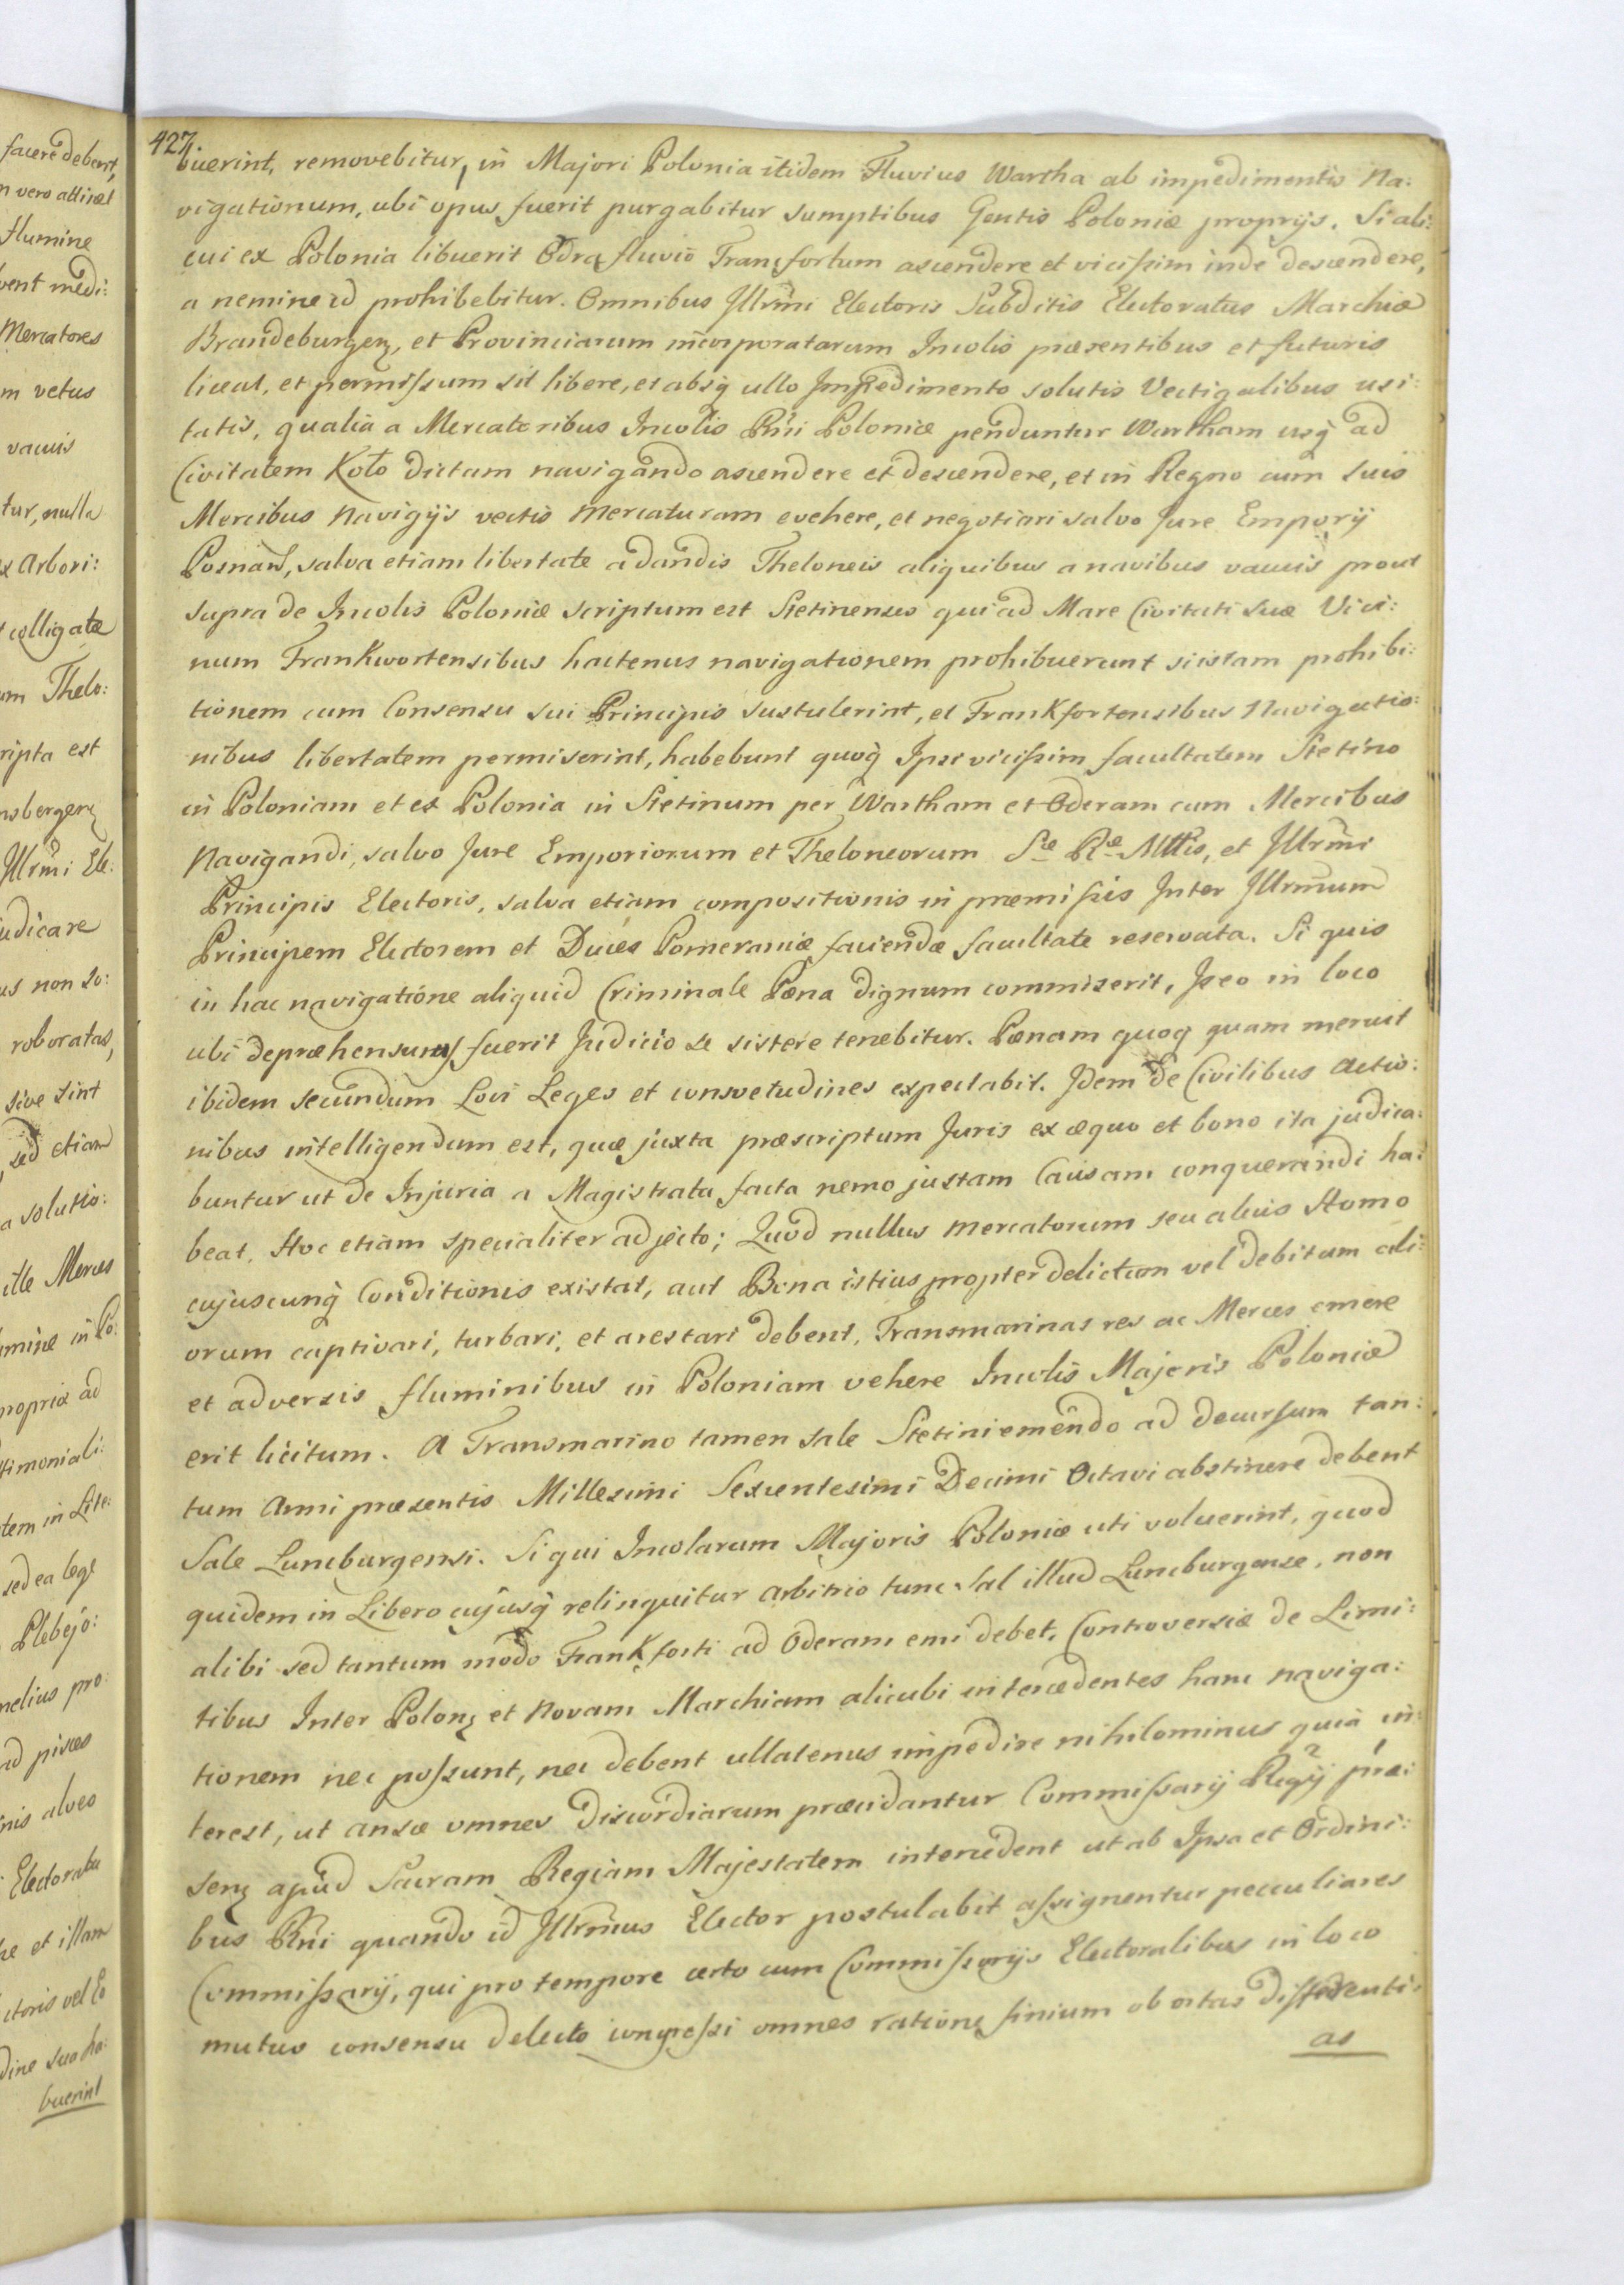 427
buerint, removebitur, in Majori Polonia itidem Fluvius Wartha ab impedimentis Na:
vigationum, ubi opus fuerit purgabitur sumptibus Gentis Poloniæ proprijs. Si ali:
cui ex Polonia libuerit Odra fluvio Francfortum ascendere et vicissim inde descendere,
a nemine id prohibebitur. Omnibus Illrmi Electoris Subditis Electoratus Marchiæ
Brandeburgen, et Provinciarum incorporatarum Incolis præsentibus et futuris
liceat, et permissum sit libere, et absq ullo Impedimento solutis Vectigalibus usi:
tatis, qualia a Mercatoribus Incolis Rni Poloniæ penduntur Wartham usq ad
Civitatem Koło dictam navigando ascendere et descendere, et in Regno cum suis
Mercibus Navigijs vectis Mercaturam evehere, et negotiari salvo Jure Emporij
Posnan, salva etiam libertate a dandis Theloneis aliquibus a navibus vacuis prout
supra de Incolis Poloniæ scriptum est Stetinenses qui ad Mare Civitati suæ Vici:
num Frankwortensibus hactenus navigationem prohibuerunt si istam prohibi:
tionem cum Consensu sui Principis sustulerint, et Frankfortensibus Navigatio:
nibus libertatem permiserint, habebunt quoq Ipsi vicissim facultatem Stetino
in Poloniam et ex Polonia in Stetinum per Wartham et Oderam cum Mercibus
Navigandi, salvo Jure Emporiorum et Theloneorum Sæ Ræ Mttis, et Illrmi
Principis Electoris, salva etiam compositionis in præmissis Inter Illrmum
Principem Electorem et Duces Pomeraniæ faciendæ facultate reservata. Si quis
in hac navigatione aliquid Criminale Pœna dignum commiserit, Iseo in loco
ubi depræhensus fuerit Judicio se sistere tenebitur. Pœnam quoq quam meruit
ibidem secundum Loci Leges et consvetudines expectabit. Idem de Civilibus actio:
nibus intelligendum est, quæ juxta præscriptum Juris ex æquo et bono ita judica:
buntur ut de Injuria a Magistratu facta nemo justam Causam conquerendi ha:
beat. Hoc etiam specialiter adjecto; Quod nullus mercatorum seu alius Homo
cujuscunq Conditionis existat, aut Bona istius propter delictum vel debitum ali:
orum captivari, turbari, et arestari debent, Transmarinas res ac Merces emere
et adversis fluminibus in Poloniam vehere Incolis Majoris Poloniæ
erit licitum. A Transmarino tamen sale Stetini emendo ad decursum tan:
tum Anni præsentis Millesimi Sexcentesimi Decimi Octavi abstinere debent
Sale Luneburgensi. Si qui Incolarum Majoris Poloniæ uti voluerint, quod
quidem in Libero cujusq relinquitur arbitrio tunc sal illud Luneburgense, non
alibi sed tantum modo Frankforti ad Oderam emi debet. Controversiæ de Limi:
tibus Inter Polon et Novam Marchiam alicubi intercedentes hanc naviga:
tionem nec possunt, nec debent ullatenus impedire nihilominus quia in:
terest, ut ansæ omnes discordiarum præcidantur Commissarij Regij præ:
sen apud Sacram Regiam Majestatem intercedent ut ab Ipsa et Ordini:
bus Rni quando id Illrmus Elector postulabit assignentur peculiares
Commissarij, qui pro tempore certo cum Commissarijs Electoralibus in loco
mutuo consensu delecto congressi omnes ratione finium obortas differenti:
as
facere debent,
n vero attinet
flumine
Mercatores
m vetus
vacuis
tur, nulla
x Arbori:
colligatæ
um Thelo:
ripta est
nsbergen
Illrmi Ele:
udicare
us non so:
roboratas,
sive sint
sed etiam
a solutio:
ille Merces
mine in Po:
propriæ ad
timoniali:
tem in Lite:
sed ea lege
Plebejo:
melius pro:
ad pisces
nis alveo
Electoratu
he et illam
ctoris vel
dine suo ha:
buerint